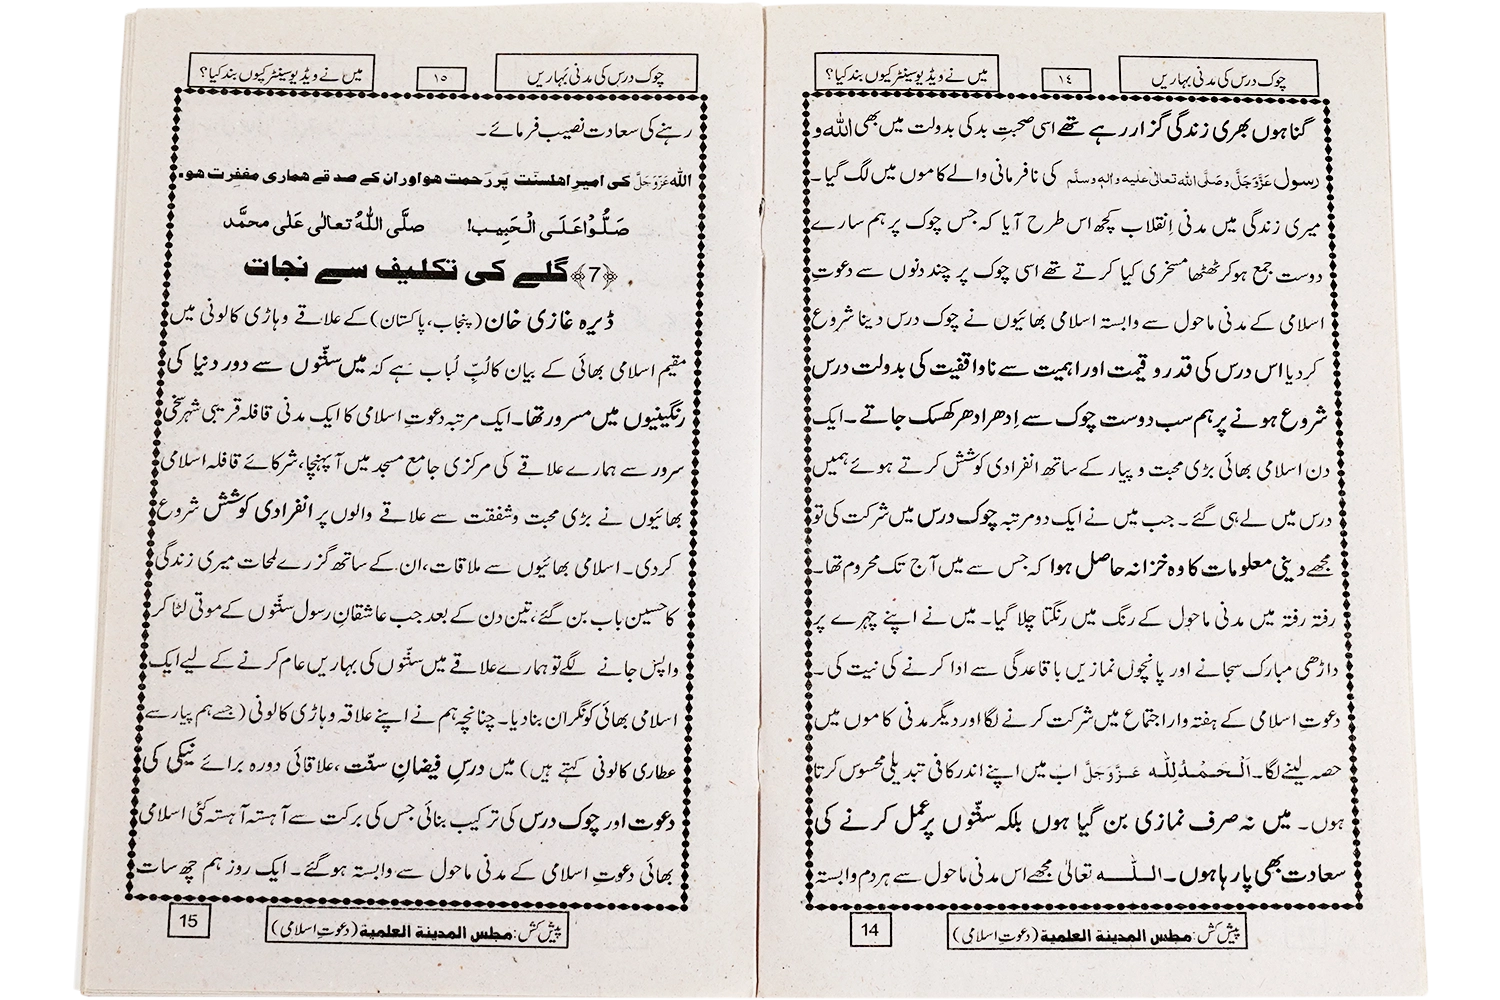 چوک درس کی مدنی بہاریں
١٤
میں نے ویڈیو سینٹر کیوں بند کیا؟
گناہوں بھری زندگی گزار رہے تھے اسی صحبتِ بد کی بدولت میں بھی اللہ و
رسول عَزَّوَجَلَّ و صَلَّی اللہ تعالٰی علیہ واٰلہٖ وسلَّم کی نافرمانی والے کاموں میں لگ گیا۔
میری زندگی میں مدنی اِنقلاب کچھ اس طرح آیا کہ جس چوک پر ہم سارے
دوست جمع ہو کر ٹھٹھا مسخری کیا کرتے تھے اسی چوک پر چند دنوں سے دعوتِ
اسلامی کے مدنی ماحول سے وابستہ اسلامی بھائیوں نے چوک درس دینا شروع
کر دیا اس درس کی قدر و قیمت اور اہمیت سے ناواقفیت کی بدولت درس
شروع ہونے پر ہم سب دوست چوک سے اِدھر ادھر کھسک جاتے۔ ایک
دن اسلامی بھائی بڑی محبت و پیار کے ساتھ انفرادی کوشش کرتے ہوئے ہمیں
درس میں لے ہی گئے۔ جب میں نے ایک دو مرتبہ چوک درس میں شرکت کی تو
مجھے دینی معلومات کا وہ خزانہ حاصل ہوا کہ جس سے میں آج تک محروم تھا۔
رفتہ رفتہ میں مدنی ماحول کے رنگ میں رنگتا چلا گیا۔ میں نے اپنے چہرے پر
داڑھی مبارک سجانے اور پانچوں نمازیں باقاعدگی سے ادا کرنے کی نیت کی۔
دعوتِ اسلامی کے ہفتہ وار اجتماع میں شرکت کرنے لگا اور دیگر مدنی کاموں میں
حصہ لینے لگا۔ اَلْحَمْدُلِلّٰہ عَزَّوَجَلَّ اب میں اپنے اندر کافی تبدیلی محسوس کرتا
ہوں۔ میں نہ صرف نمازی بن گیا ہوں بلکہ سنّتوں پر عمل کرنے کی
سعادت بھی پا رہا ہوں۔ اللہ تعالیٰ مجھے اس مدنی ماحول سے ہر دم وابستہ
پیش کش: مجلس المدینة العلمیة (دعوتِ اسلامی)
14
چوک درس کی مدنی بہاریں
١٥
میں نے ویڈیو سینٹر کیوں بند کیا؟
رہنے کی سعادت نصیب فرمائے۔
اللہ عَزَّوَجَلَّ کی امیرِ اھلسنّت پر رَحمت ھو اور ان کے صدقے ھماری مغفِرت ھو۔
صَلُّوْا عَلَی الْحَبِیب! صلَّی اللّٰہُ تعالٰی عَلٰی محمَّد
﴿7﴾ گلے کی تکلیف سے نجات
ڈیرہ غازی خان (پنجاب، پاکستان) کے علاقے وہاڑی کالونی میں
مقیم اسلامی بھائی کے بیان کا لُبِّ لُباب ہے کہ میں سنّتوں سے دور دنیا کی
رنگینیوں میں مسرور تھا۔ ایک مرتبہ دعوتِ اسلامی کا ایک مدنی قافلہ قریبی شہر سخی
سرور سے ہمارے علاقے کی مرکزی جامع مسجد میں آ پہنچا، شرکائے قافلہ اسلامی
بھائیوں نے بڑی محبت و شفقت سے علاقے والوں پر انفرادی کوشش شروع
کر دی۔ اسلامی بھائیوں سے ملاقات، ان کے ساتھ گزرے لمحات میری زندگی
کا حسین باب بن گئے، تین دن کے بعد جب عاشقانِ رسول سنّتوں کے موتی لٹا کر
واپس جانے لگے تو ہمارے علاقے میں سنّتوں کی بہاریں عام کرنے کے لیے ایک
اسلامی بھائی کو نگران بنا دیا۔ چنانچہ ہم نے اپنے علاقہ وہاڑی کالونی (جسے ہم پیار سے
عطاری کالونی کہتے ہیں) میں درسِ فیضانِ سنّت، علاقائی دورہ برائے نیکی کی
دعوت اور چوک درس کی ترکیب بنائی جس کی برکت سے آہستہ آہستہ کئی اسلامی
بھائی دعوتِ اسلامی کے مدنی ماحول سے وابستہ ہو گئے۔ ایک روز ہم چھ سات
پیش کش: مجلس المدینة العلمیة (دعوتِ اسلامی)
15